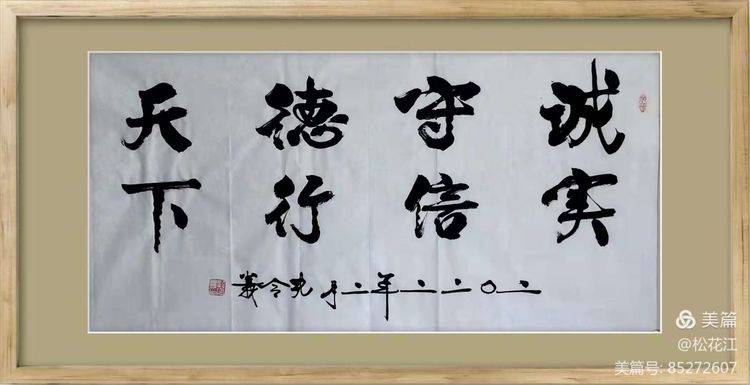 诚实
守信
德行
天下
二〇二二年二月 令義
美篇
@松花江
美篇号: 85272607